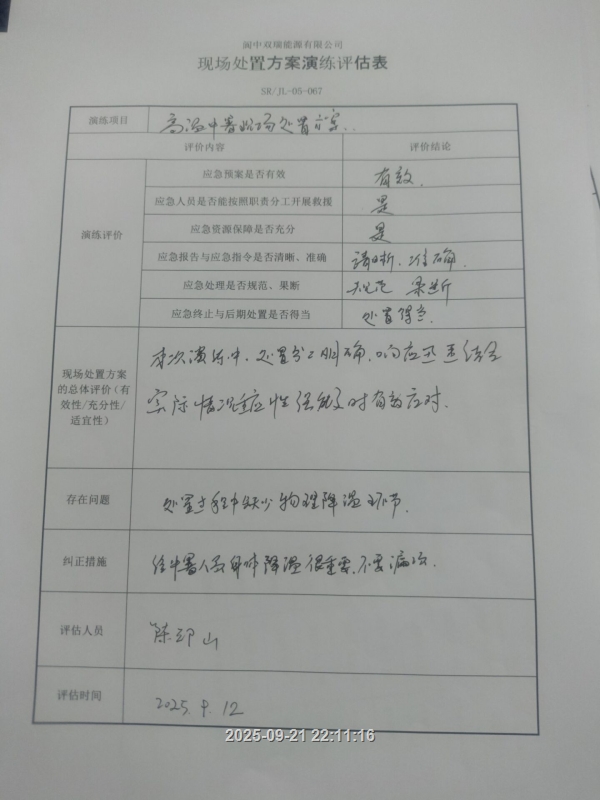 阆中双瑞能源有限公司
现场处置方案演练评估表
SR/JL-05-067
演练项目 高温中暑现场处置方案.
评价内容 评价结论
演练评价
应急预案是否有效 有效.
应急人员是否能按照职责分工开展救援 是
应急资源保障是否充分 是
应急报告与应急指令是否清晰、准确 清晰、准确.
应急处理是否规范、果断 规范 果断
应急终止与后期处置是否得当 处置得当.
现场处置方案的总体评价（有效性/充分性/适宜性）
本次演练中,处置分工明确,响应迅速结合
实际情况适应性强能及时有效应对.
存在问题 处置过程中缺少物理降温环节.
纠正措施 给中暑人员身体降温很重要,不要漏项.
评估人员 陈邛山
评估时间 2025.9.12
2025-09-21 22:11:16